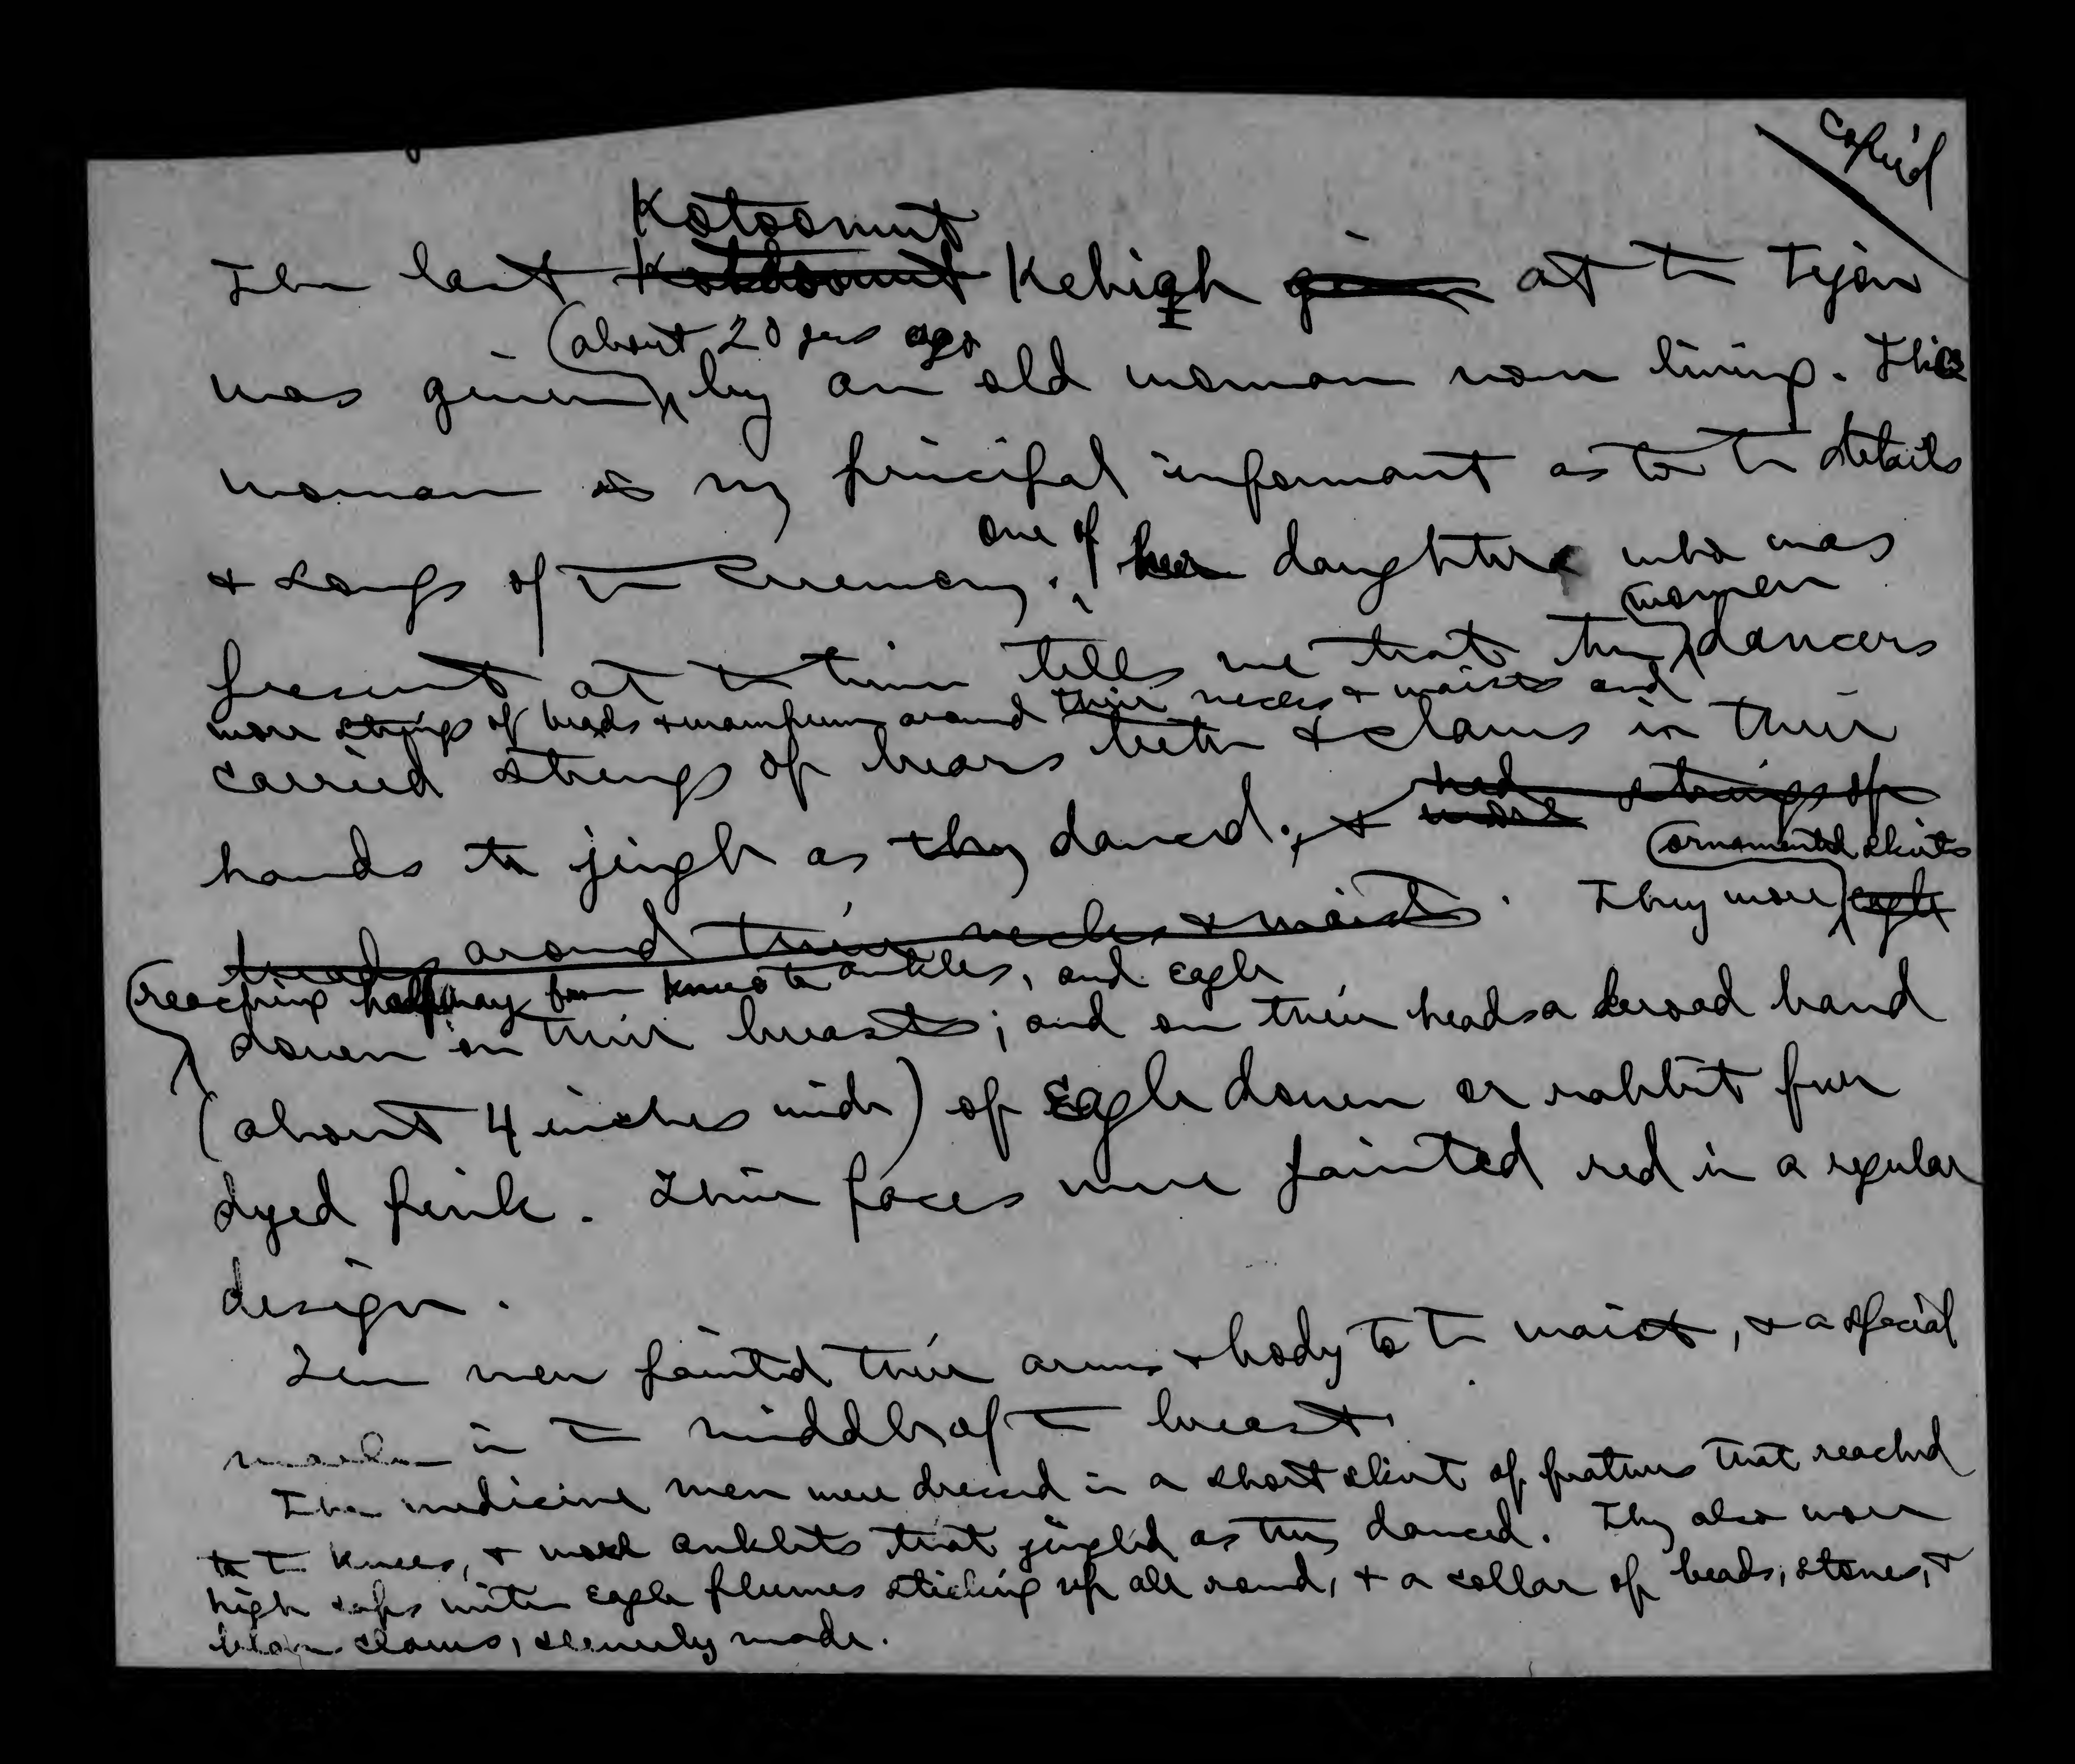 copied
Kotoomut
The last Kotoomut Kehigh given at the Tejon
(about 20 yrs ago
was given by an old woman now living. This
woman is my principal informant as to the details
one of
& songs of the Ceremony. her daughters who was
women
present at the time tells me that the dancers
wore strings of beads & wampum around their necks & waists and
carried strings of bears teeth & claws in their
had strings of
hands to jingle as they danced; & wore
ornamented skirts
beads around their necks & waists. They wore eagle
(reaching halfway from knees to ankles, and eagle
down on their breasts; and on their heads a broad band
(about 4 inches wide) of Eagle down or rabbit fur
dyed pink. Their faces were painted red in a regular
design.
The men painted their arms & body to the waist, & a special
mark in the middle of the breast.
The medicine men were dressed in a short skirt of feathers that reached
to the knees, & wore anklets that jingled as they danced. They also wore
high caps with eagle plumes sticking up all round, & a collar of beads, stones, &
bear claws, cleverly made.